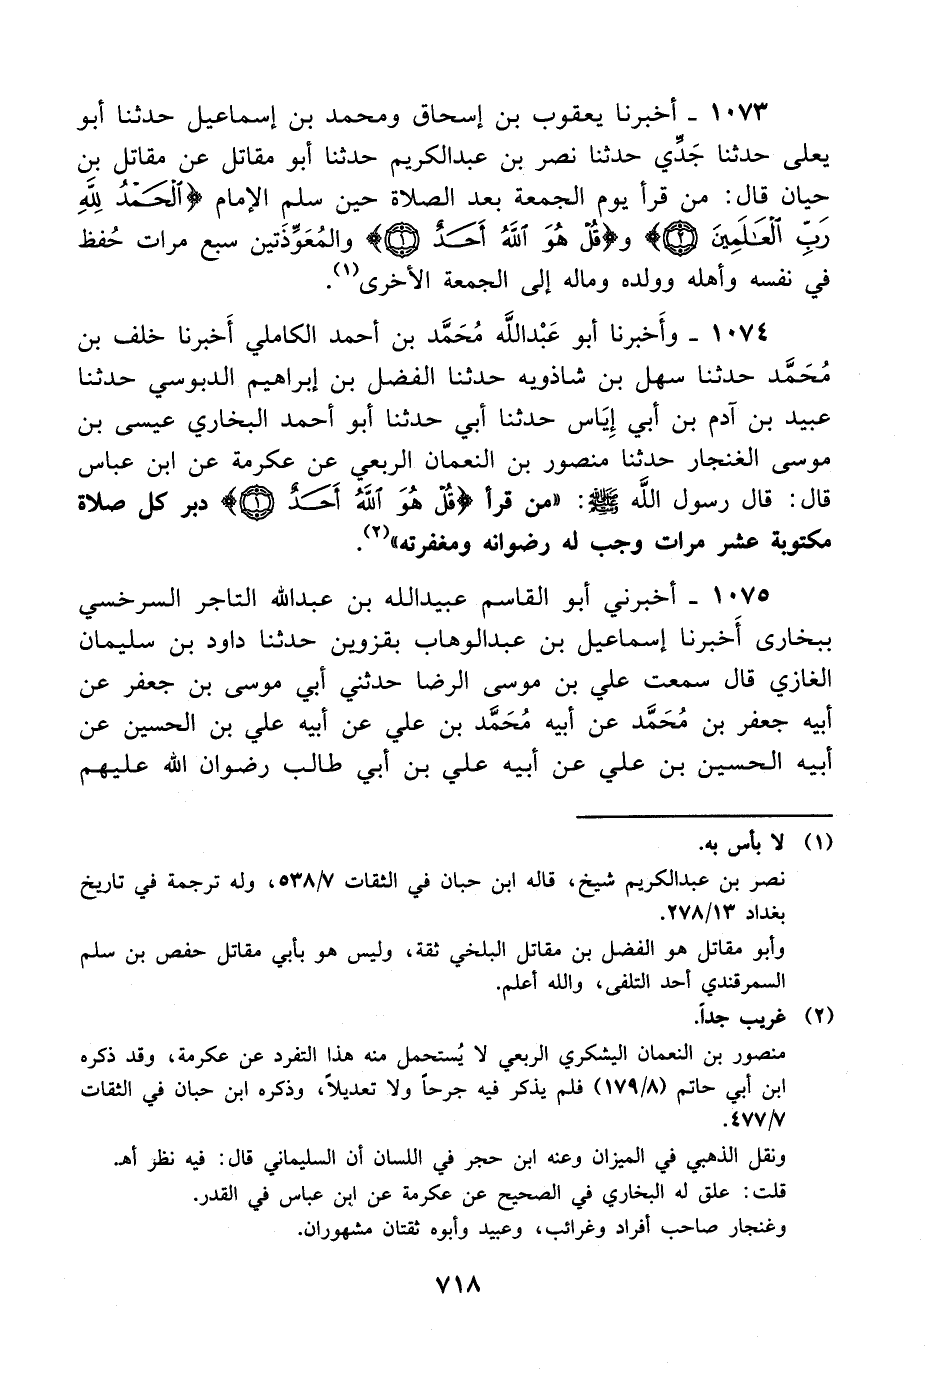 ١٠٧٣ ـ أخبرنا يعقوب بن إسحاق ومحمد بن إسماعيل حدثنا أبو
يعلى حدثنا جَدِّي حدثنا نصر بن عبدالكريم حدثنا أبو مقاتل عن مقاتل بن
حيان قال: من قرأ يوم الجمعة بعد الصلاة حين سلم الإمام ﴿ٱلْحَمْدُ لِلَّهِ
رَبِّ ٱلْعَـٰلَمِينَ ﴿٢﴾﴾ و﴿قُلْ هُوَ ٱللَّهُ أَحَـدٌ ﴿١﴾﴾ والمُعَوِّذَتين سبع مرات حُفظ
في نفسه وأهله وولده وماله إلى الجمعة الأخرى(١).
١٠٧٤ ـ وأَخبرنا أبو عَبْداللَّه مُحَمَّد بن أحمد الكاملي أَخبرنا خلف بن
مُحَمَّد حدثنا سهل بن شاذويه حدثنا الفضل بن إبراهيم الدبوسي حدثنا
عبيد بن آدم بن أبي إِيَاس حدثنا أبي حدثنا أبو أحمد البخاري عيسى بن
موسى الغنجار حدثنا منصور بن النعمان الربعي عن عكرمة عن ابن عباس
قال: قال رسول اللَّه ﷺ: «من قرأ ﴿قُلْ هُوَ ٱللَّهُ أَحَـدٌ ﴿١﴾﴾ دبر كل صلاة
مكتوبة عشر مرات وجب له رضوانه ومغفرته»(٢).
١٠٧٥ ـ أخبرني أبو القاسم عبيدالله بن عبدالله التاجر السرخسي
ببخارى أَخبرنا إسماعيل بن عبدالوهاب بقزوين حدثنا داود بن سليمان
الغازي قال سمعت علي بن موسى الرضا حدثني أبي موسى بن جعفر عن
أبيه جعفر بن مُحَمَّد عن أبيه مُحَمَّد بن علي عن أبيه علي بن الحسين عن
أبيه الحسين بن علي عن أبيه علي بن أبي طالب رضوان الله عليهم
(١) لا بأس به.
نصر بن عبدالكريم شيخ، قاله ابن حبان في الثقات ٥٣٨/٧، وله ترجمة في تاريخ
بغداد ٢٧٨/١٣.
وأبو مقاتل هو الفضل بن مقاتل البلخي ثقة، وليس هو بأبي مقاتل حفص بن سلم
السمرقندي أحد التلفى، والله أعلم.
(٢) غريب جداً.
منصور بن النعمان اليشكري الربعي لا يُستحمل منه هذا التفرد عن عكرمة، وقد ذكره
ابن أبي حاتم (١٧٩/٨) فلم يذكر فيه جرحاً ولا تعديلاً، وذكره ابن حبان في الثقات
٤٧٧/٧.
ونقل الذهبي في الميزان وعنه ابن حجر في اللسان أن السليماني قال: فيه نظر أهـ.
قلت: علق له البخاري في الصحيح عن عكرمة عن ابن عباس في القدر.
وغنجار صاحب أفراد وغرائب، وعبيد وأبوه ثقتان مشهوران.
٧١٨